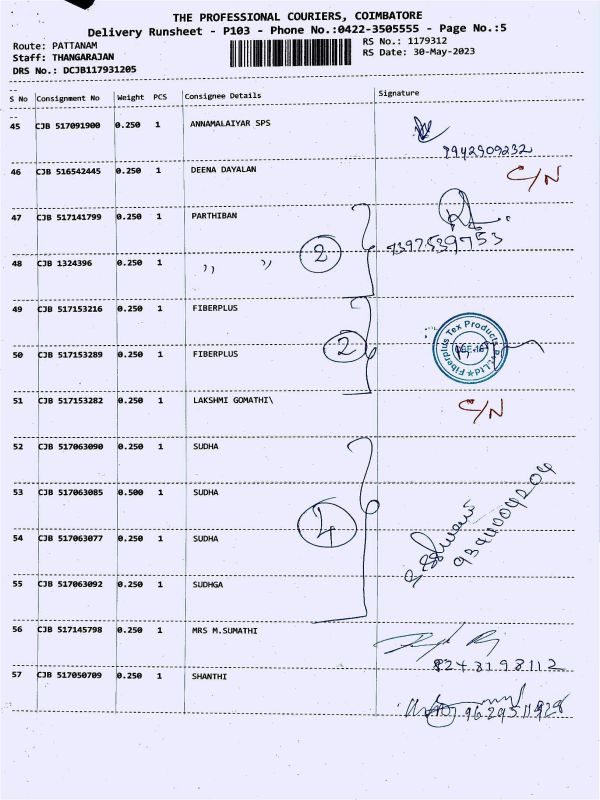 THE PROFESSIONAL COURIERS, COIMBATORE
Delivery Runsheet - P103 - Phone No.:0422-3505555 - Page No.:5
Route: PATTANAM
RS No.: 1179312
Staff: THANGARAJAN
RS Date: 30-May-2023
DRS No.: DCJB117931205
S No Consignment No Weight PCS Consignee Details Signature
45 CJB 517091900 0.250 1 ANNAMALAIYAR SPS
8942909232
46 CJB 516542445 0.250 1 DEENA DAYALAN C/N
47 CJB 517141799 0.250 1 PARTHIBAN
7397539753
2
48 CJB 1324396 0.250 1 ,, ,,
49 CJB 517153216 0.250 1 FIBERPLUS
Fiberplus Tex Products Pvt.Ltd
2
50 CJB 517153289 0.250 1 FIBERPLUS
51 CJB 517153282 0.250 1 LAKSHMI GOMATHI\ C/N
52 CJB 517063090 0.250 1 SUDHA
53 CJB 517063085 0.500 1 SUDHA
4
9344004204
54 CJB 517063077 0.250 1 SUDHA
55 CJB 517063092 0.250 1 SUDHGA
56 CJB 517145798 0.250 1 MRS M.SUMATHI
8248198112
57 CJB 517050709 0.250 1 SHANTHI
9629511928